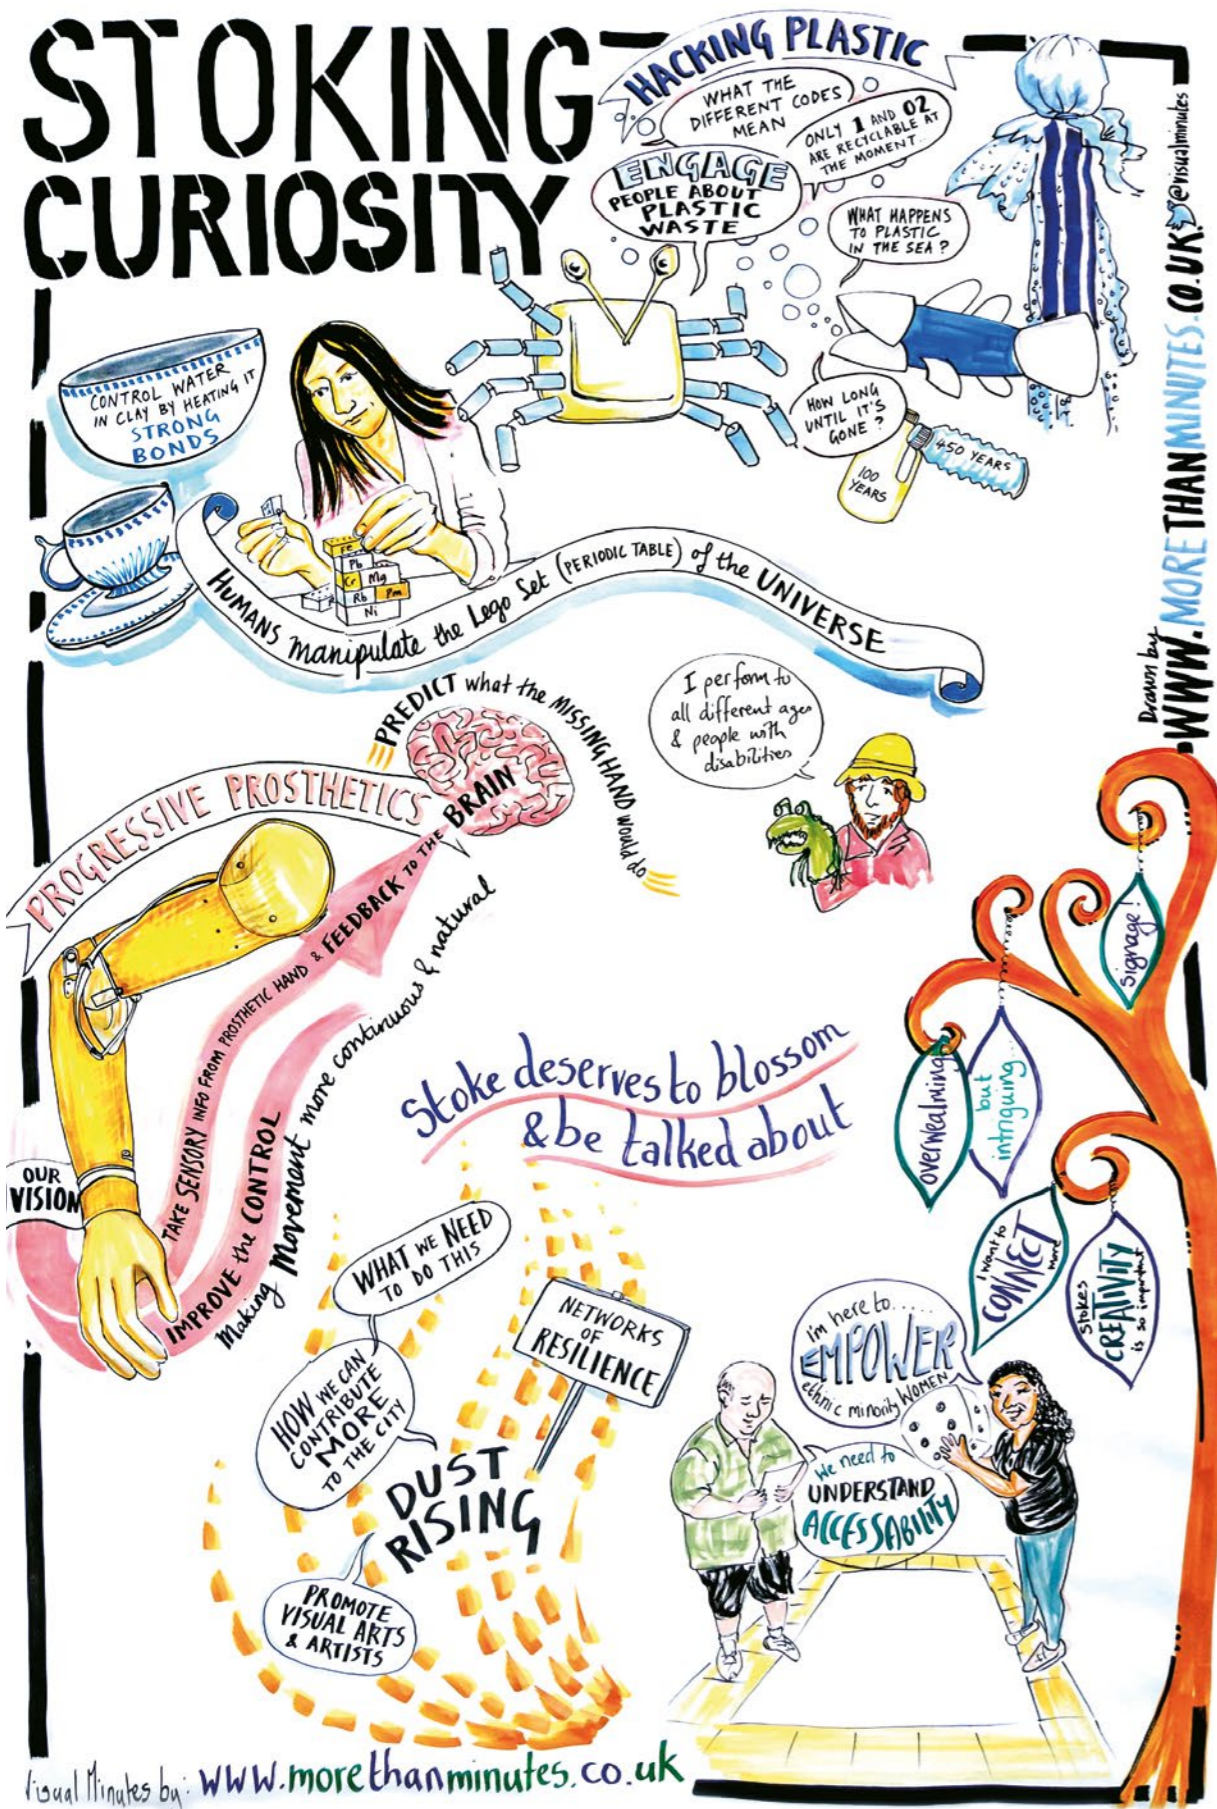 STOKING
CURIOSITY
HACKING PLASTIC
WHAT THE
DIFFERENT CODES
MEAN
ONLY 1 AND 02
ARE RECYCLABLE AT
THE MOMENT...
ENGAGE
PEOPLE ABOUT
PLASTIC
WASTE
WHAT HAPPENS
TO PLASTIC
IN THE SEA?
HOW LONG
UNTIL IT'S
GONE?
450 YEARS
100
YEARS
Drawn by
WWW.MORETHANMINUTES.CO.UK
@visualminutes
CONTROL WATER
IN CLAY BY HEATING IT
STRONG
BONDS
Fe
Pb
Cr Mg
Rb Pm
Ni
HUMANS manipulate the Lego Set (PERIODIC TABLE) of the UNIVERSE
PREDICT what the MISSING HAND would do
I perform to
all different ages
& people with
disabilities
PROGRESSIVE PROSTHETICS
TAKE SENSORY INFO FROM PROSTHETIC HAND & FEEDBACK TO THE BRAIN
OUR
VISION
IMPROVE the CONTROL
Making Movement more continuous & natural
Stoke deserves to blossom
& be talked about
Signage!
overwealming
but
intriguing...
I want to
CONNECT
more
Stokes
CREATIVITY
is so important
WHAT WE NEED
TO DO THIS
NETWORKS
OF
RESILIENCE
HOW WE CAN
CONTRIBUTE
MORE
TO THE CITY
DUST
RISING
PROMOTE
VISUAL ARTS
& ARTISTS
I'm here to.....
EMPOWER
ethnic minority WOMEN
We need to
UNDERSTAND
ACCESSABILITY
Visual Minutes by: WWW.morethanminutes.co.uk